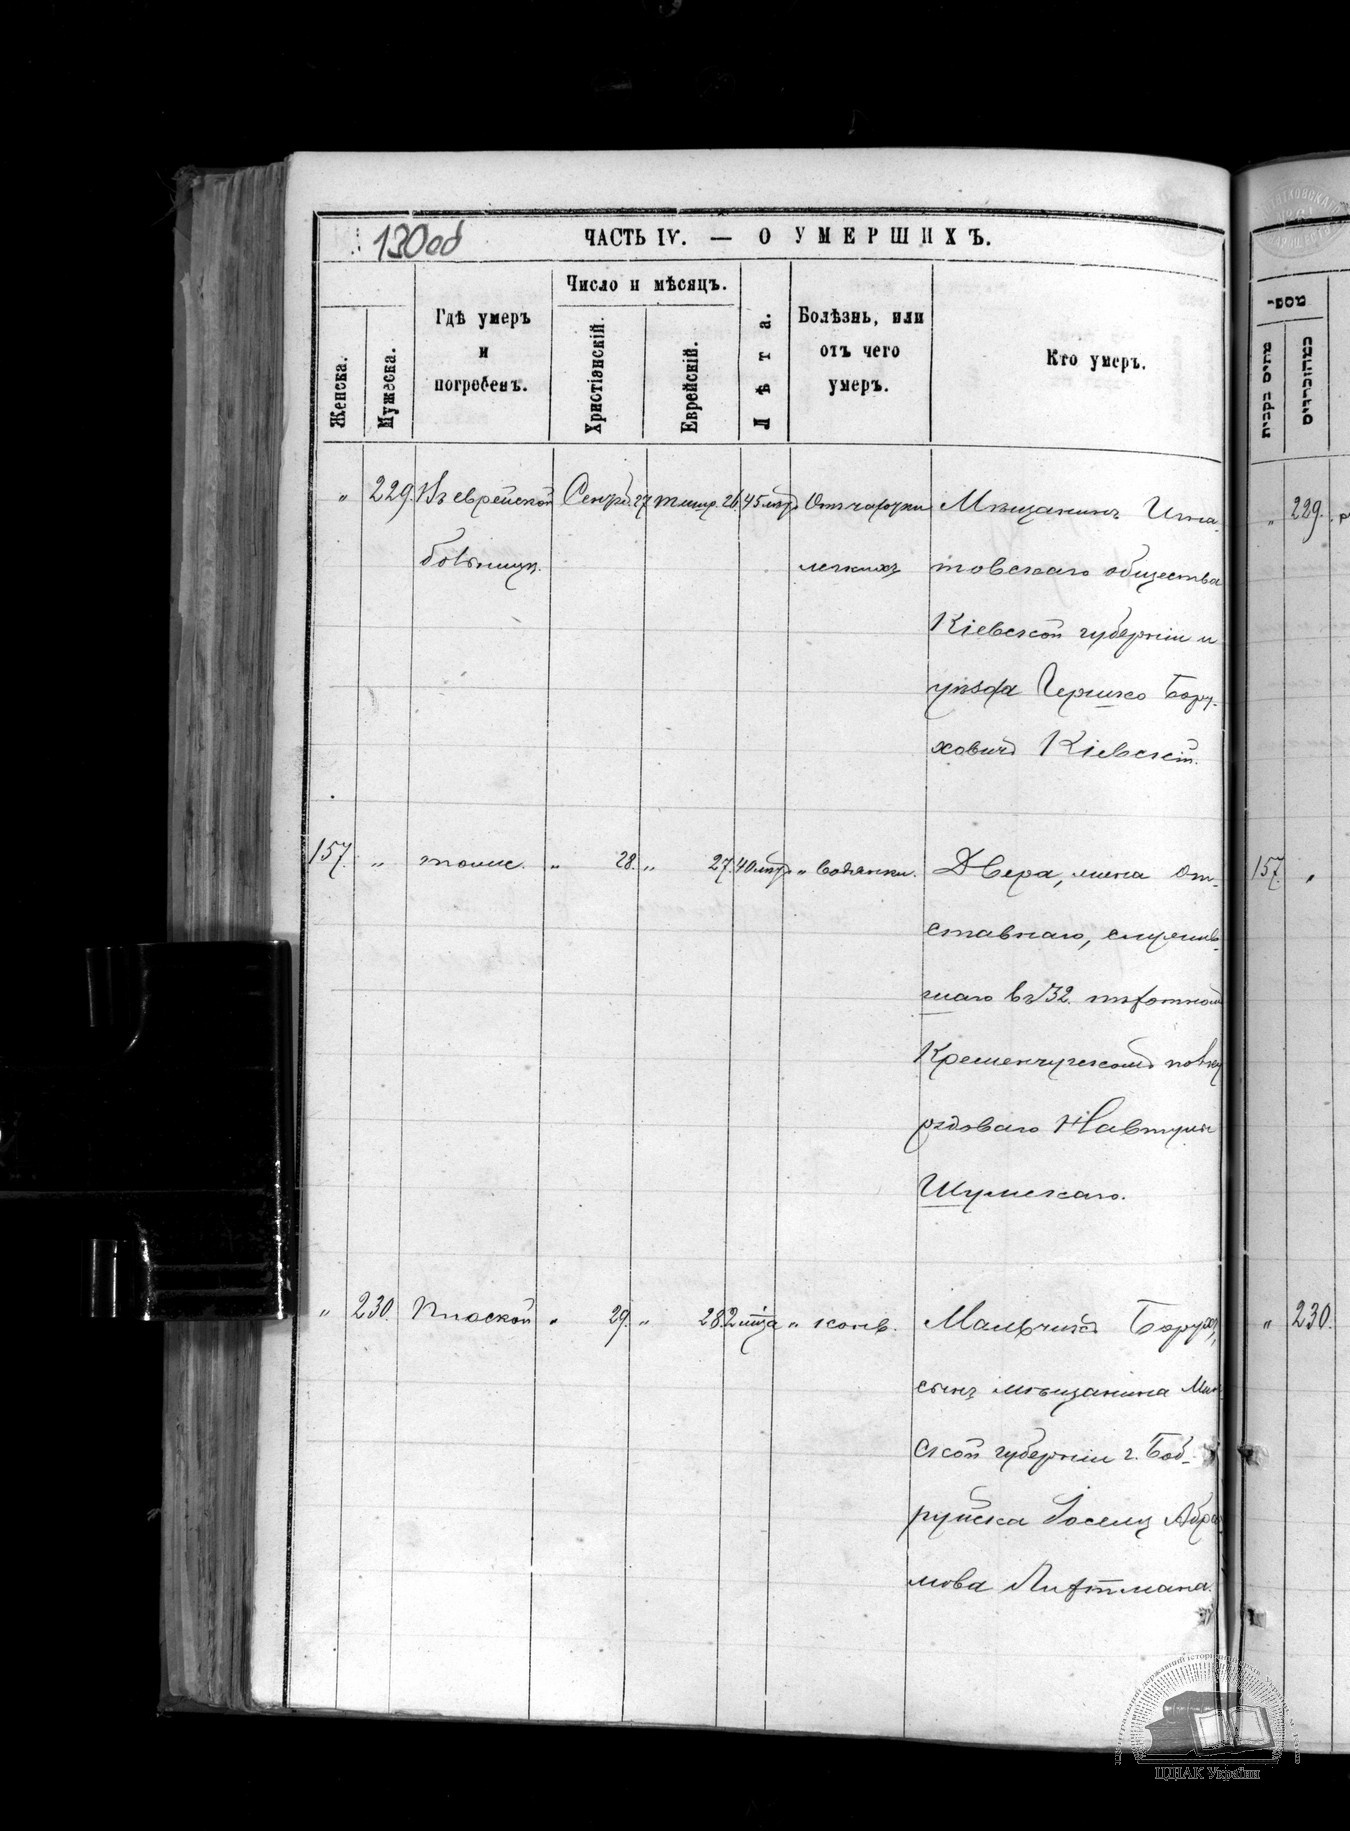 130об
ЧАСТЬ IV. — О УМЕРШИХЪ.
Женска.
Мужеска.
Гдѣ умеръ
и
погребенъ.
Число и мѣсяцъ.
Христіанскій.
Еврейскій.
Лѣта.
Болѣзнь, или
отъ чего
умеръ.
Кто умеръ.
" 229. Въ еврейской Сентяб. 27 Тишр. 26. 45 лѣтъ Отъ чахотки Мѣщанинъ Игна-
больницѣ. легкихъ товскаго общества
Кіевской губерніи и
уѣзда Гершко Бору-
ховичъ Кіевскій.
157. " тоже. " 28. " 27. 40 лѣтъ " водянки. Двера, жена от-
ставнаго, служив-
шаго въ 32. пѣхотномъ
Кременчугскомъ полку
рядоваго Навтулы
Шумскаго.
" 230. Плоской " 29. " 28. 2 мѣсяца " колів. Мальчикъ Борухъ,
сынъ мѣщанина Мин-
ской губерніи г. Боб-
руйска Іоселя Абра-
мова Лифтмана.
מספר
נקבות
הזכרים
" 229.
157. "
" 230.
ЦДІАК України